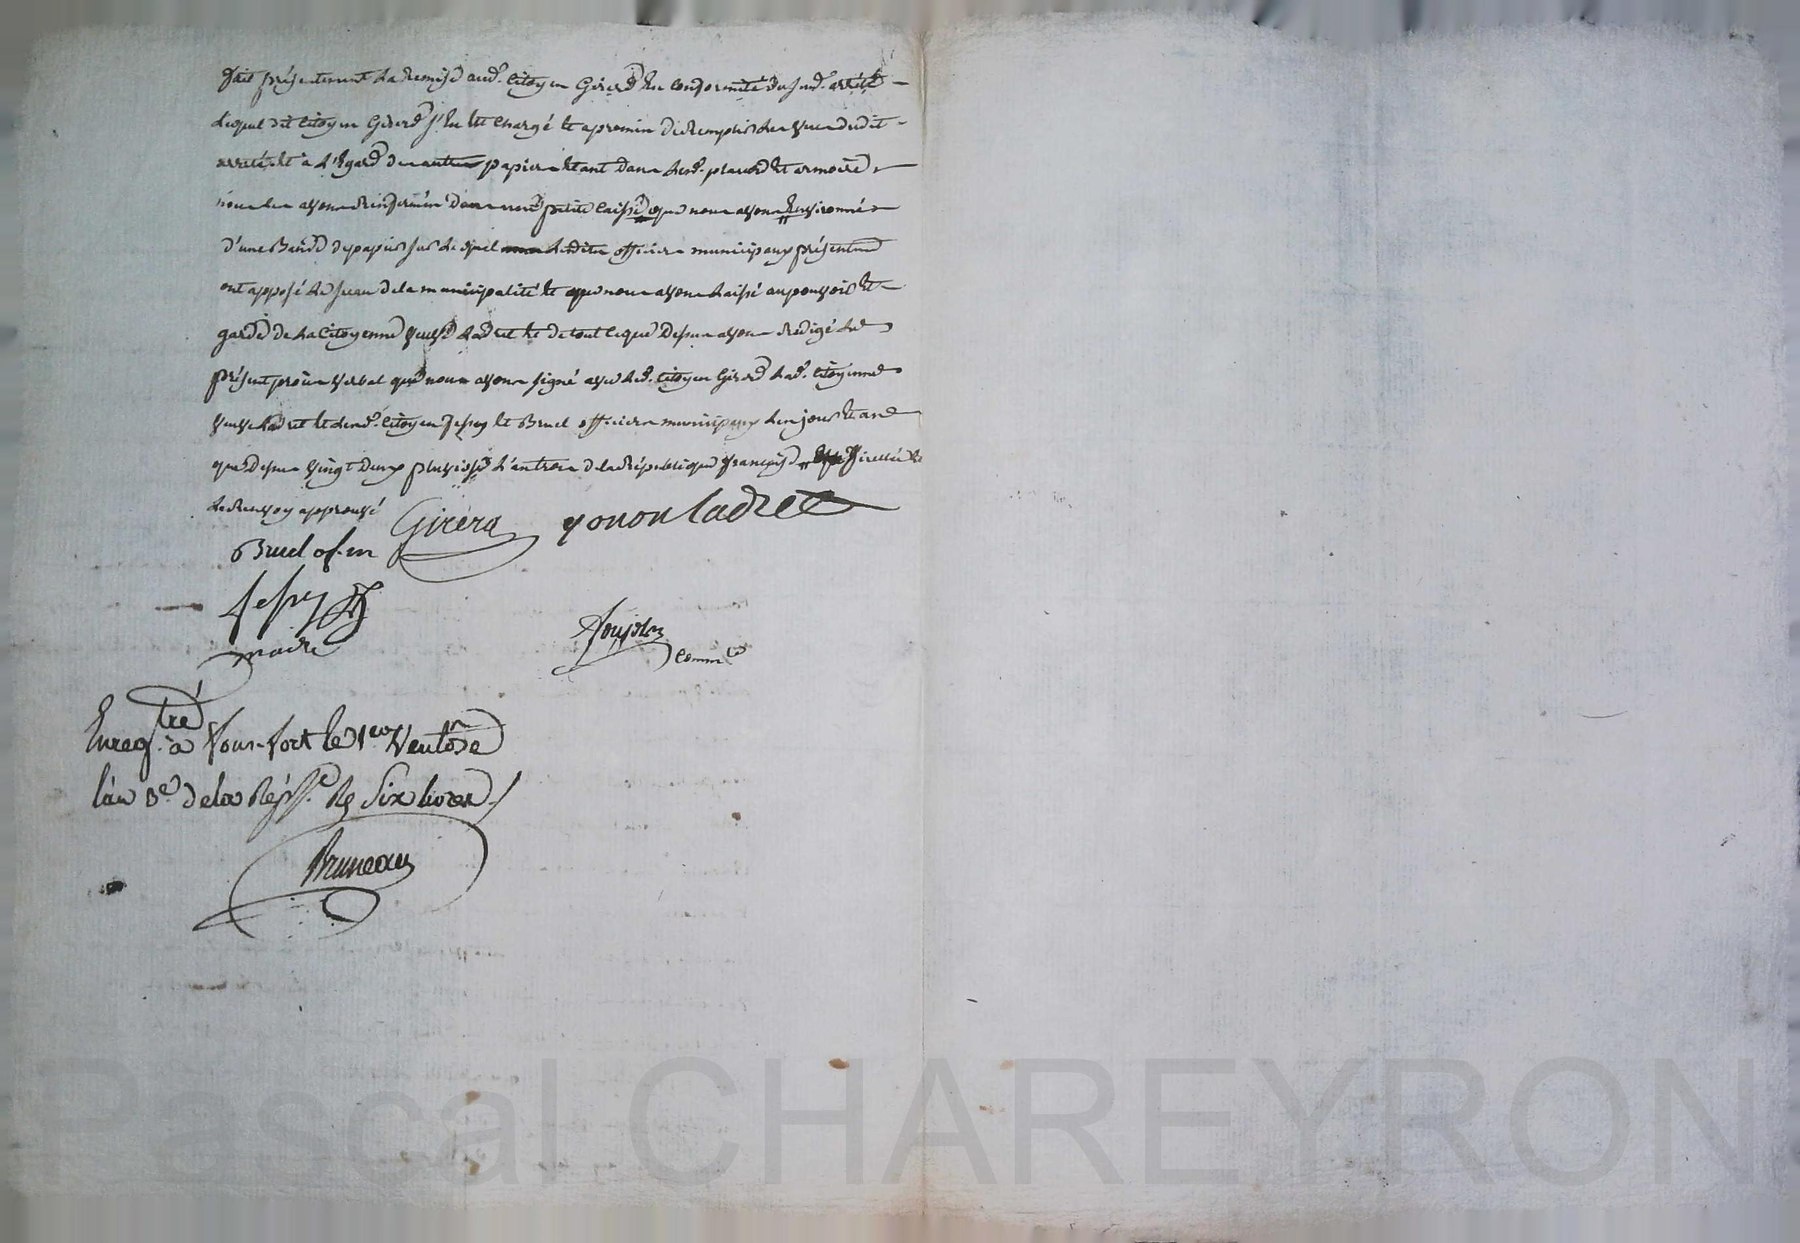 fait présentement la remise aud. Citoyen Girerd en conformité du susd. arrêté
lequel dit Citoyen Girerd s'en est chargé et a promis de remplir les vues dudit
arrêté et à l'égard des autres papiers étant dans lesd. placard et armoire
nous les avons renfermés dans une petite caisse que nous avons Environnée
d'une Bande de papier sur lequel lesdits officiers municipaux présents
ont apposé le sceau de la municipalité et que nous avons laissé au pouvoir et
garde de la Citoyenne veuve Ladret et de tout ce que Dessus avons rédigé le
présent procès verbal que nous avons signé avec led. Citoyen Girerd lad. Citoyenne
veuve Ladret et lesd. Citoyen et Bruel officiers municipaux les jour et an
que dessus vingt deux pluviose l'an trois de la République française
le renvoy approuvé
Girerd yonon ladret
Bruel of. m
maire
Comm.re
Enreg.tré à le 1er Ventôse
l'an 3e de la Rép. R Six livres
Bruneau
Pascal CHAREYRON